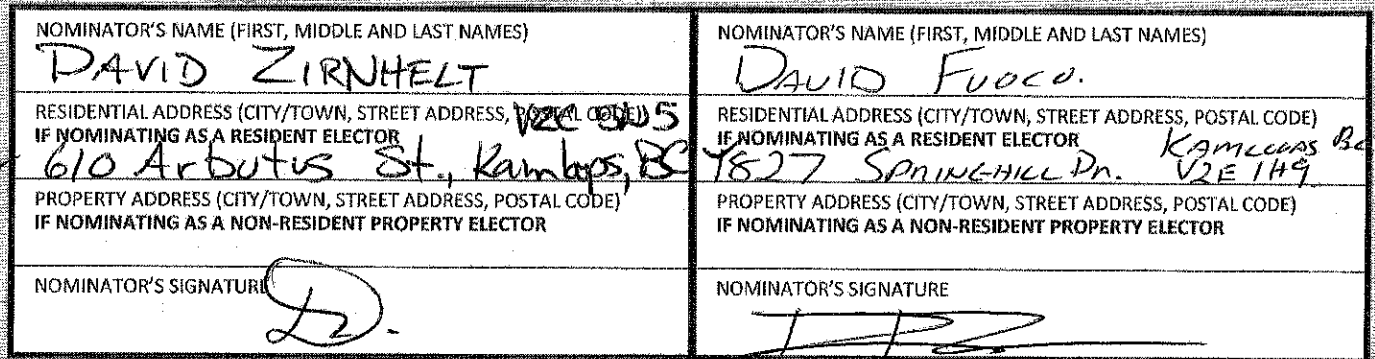 NOMINATOR'S NAME (FIRST, MIDDLE AND LAST NAMES)
DAVID ZIRNHELT
RESIDENTIAL ADDRESS (CITY/TOWN, STREET ADDRESS, POSTAL CODE)
IF NOMINATING AS A RESIDENT ELECTOR
610 Arbutus St., Kamloops, BC
PROPERTY ADDRESS (CITY/TOWN, STREET ADDRESS, POSTAL CODE)
IF NOMINATING AS A NON-RESIDENT PROPERTY ELECTOR
NOMINATOR'S SIGNATURE
NOMINATOR'S NAME (FIRST, MIDDLE AND LAST NAMES)
DAVID FUOCO.
RESIDENTIAL ADDRESS (CITY/TOWN, STREET ADDRESS, POSTAL CODE)
IF NOMINATING AS A RESIDENT ELECTOR
KAMLOOPS BC
1827 SPRINGHILL DR. V2E 1H9
PROPERTY ADDRESS (CITY/TOWN, STREET ADDRESS, POSTAL CODE)
IF NOMINATING AS A NON-RESIDENT PROPERTY ELECTOR
NOMINATOR'S SIGNATURE